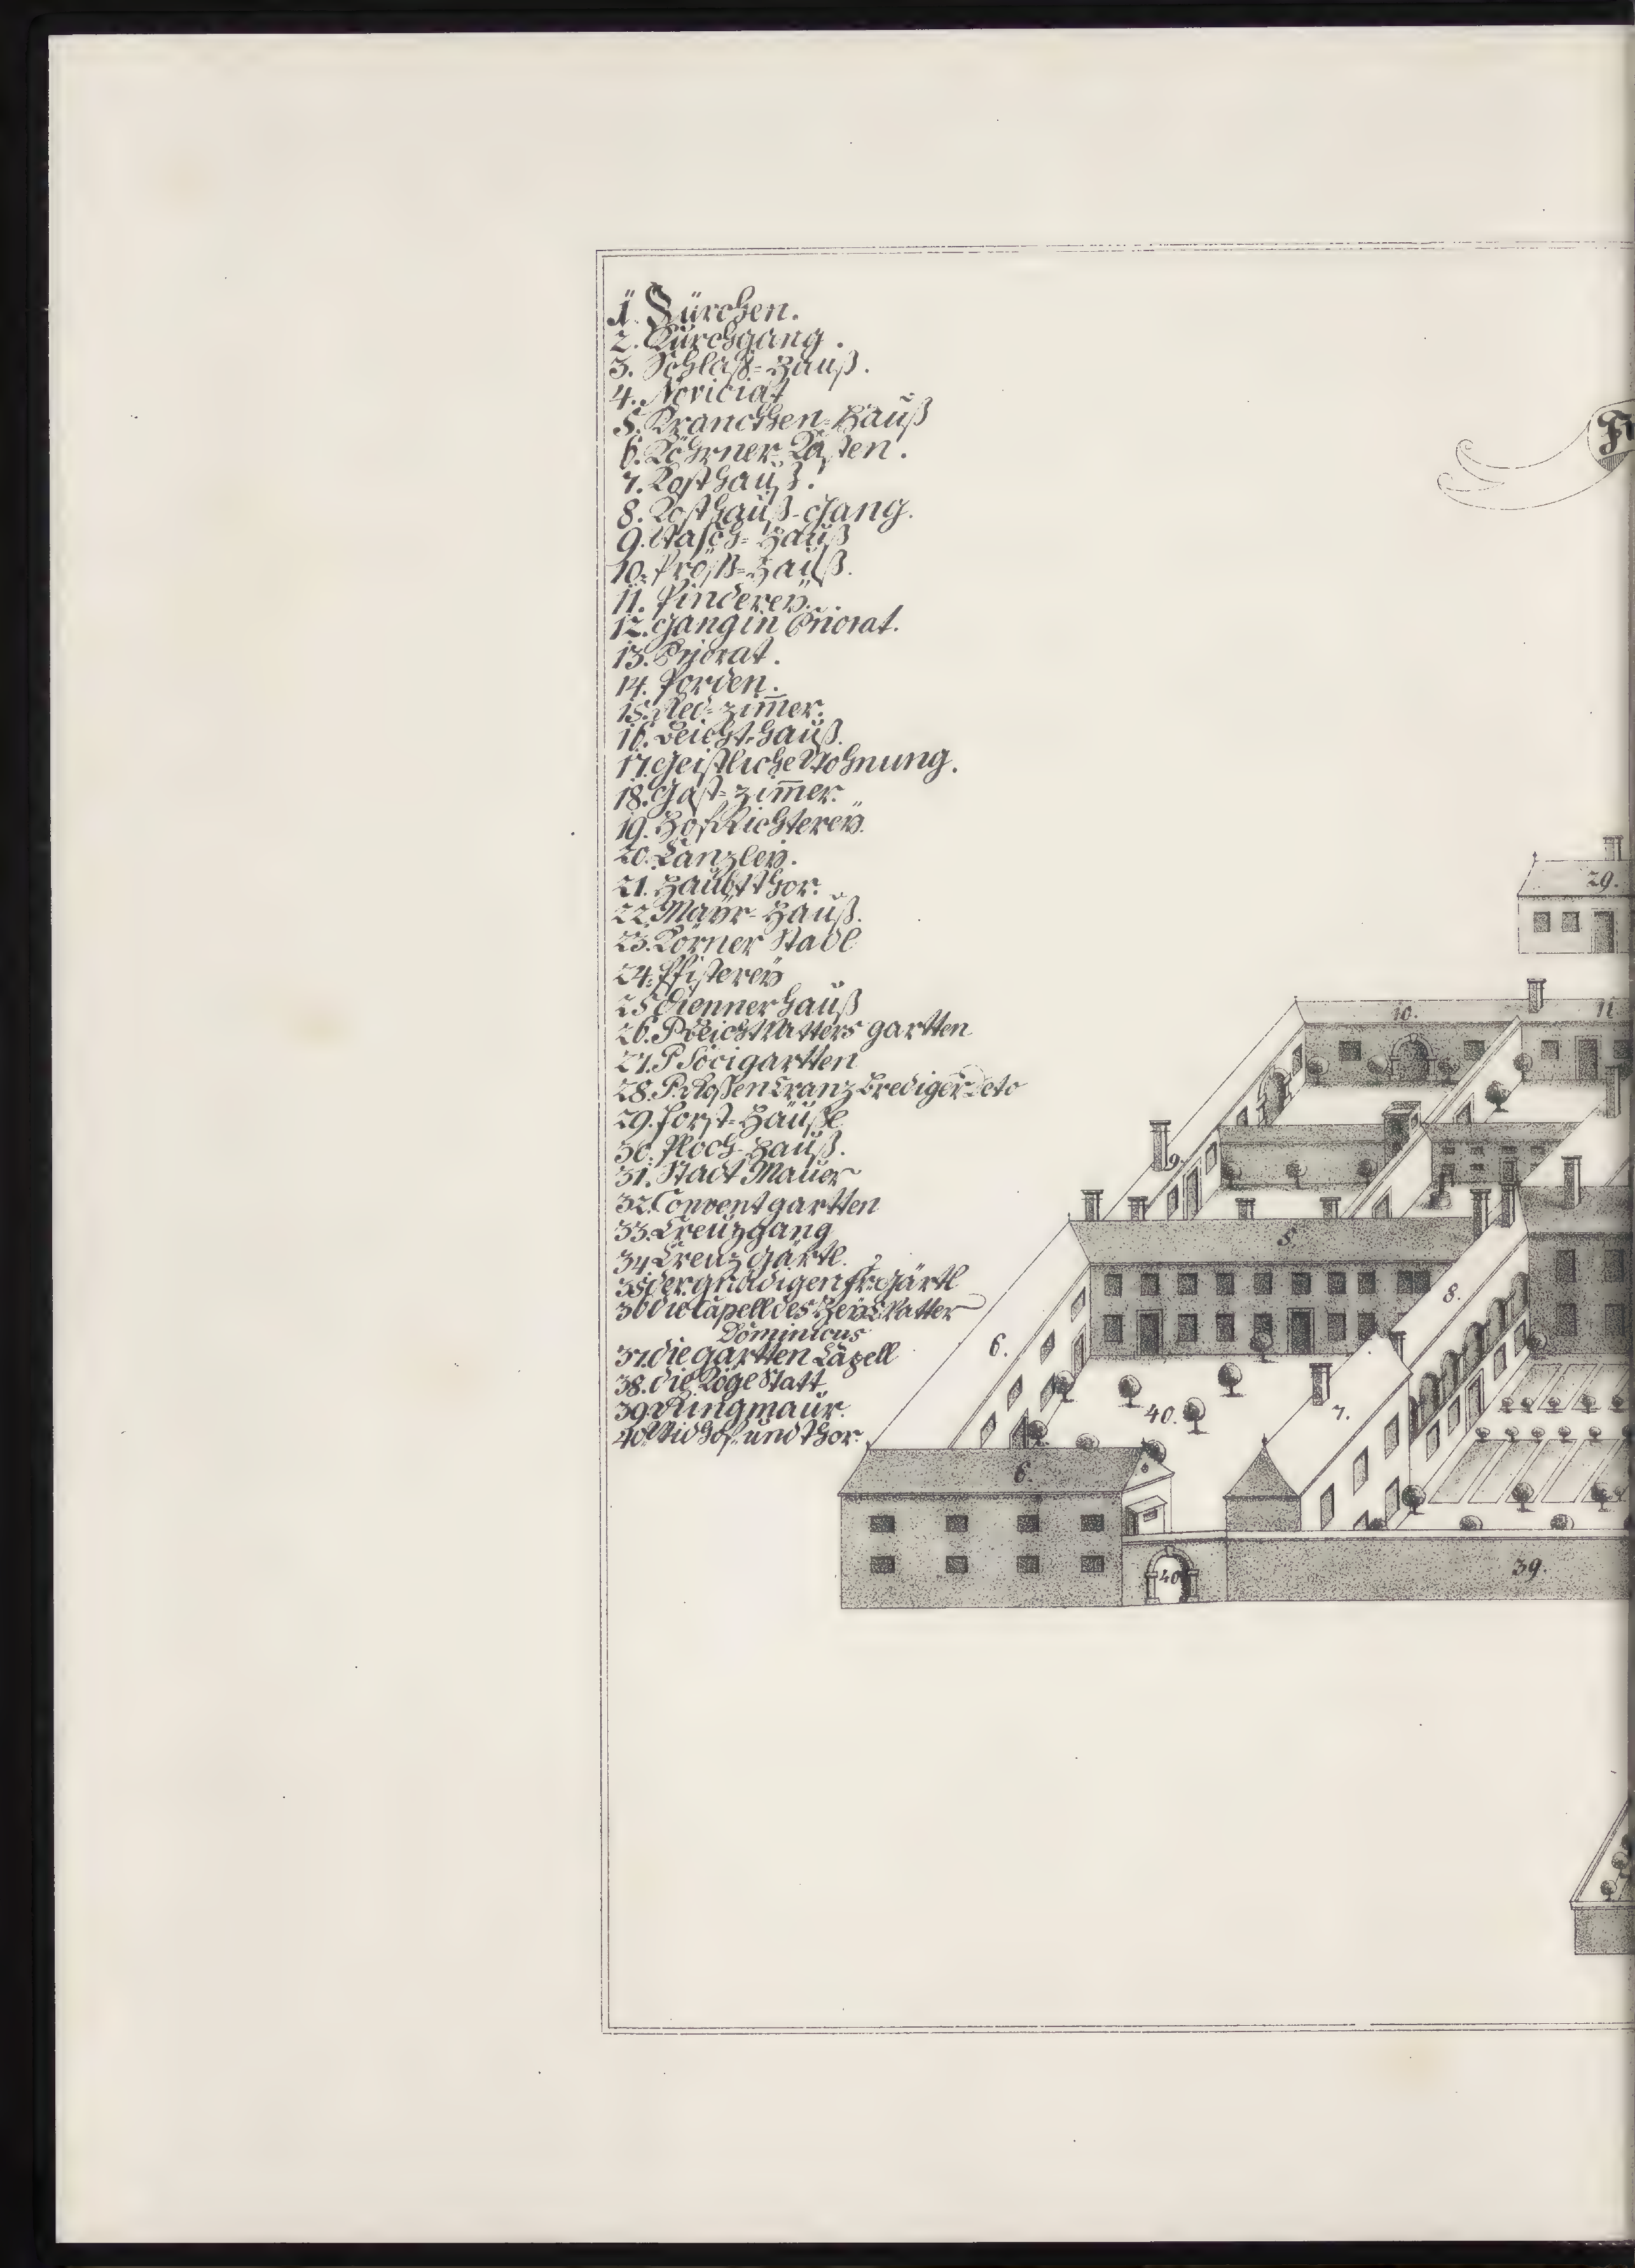 1. Kürchen.
2. Kürchgang.
3. Schlaff-Hauß.
4. Noviciat
5. Kranckhen-Hauß
6. Köhrner-Kästen.
7. Kosthauß.
8. Kosthauß-Gang.
9. Wasch-Hauß
10. Pröß-Hauß.
11. Pinderey.
12. Gang in Priorat.
13. Priorat.
14. Porden.
15. Red-zimer.
16. Beicht-hauß.
17. Geistliche Wohnung.
18. Gast-zimer.
19. Hof Richterey.
20. Canzley.
21. Haubtthor.
22. Mayr-Hauß.
23. Körner Stadl
24. Pfisterey
25 Dienner hauß
26. P Beicht Vatters gartten
27. P Socii gartten
28. P. Rossen Cranz Brediger Deto
29. Forst-Häußl
30. Ploch-Hauß.
31. Stadt Mauer
32. Convent gartten
33. Creüzgang
34 Creuz Gärtl.
35 der gnädigen Fr: Gärtl
36 die Capell des Heyl: Vatter
Dominicus
37. die gartten Capell
38. die Köge Statt
39 Ringmaur.
40 Vichof und thor.
29.
10.
11
9.
5.
8.
6.
40.
7.
6.
40
39.